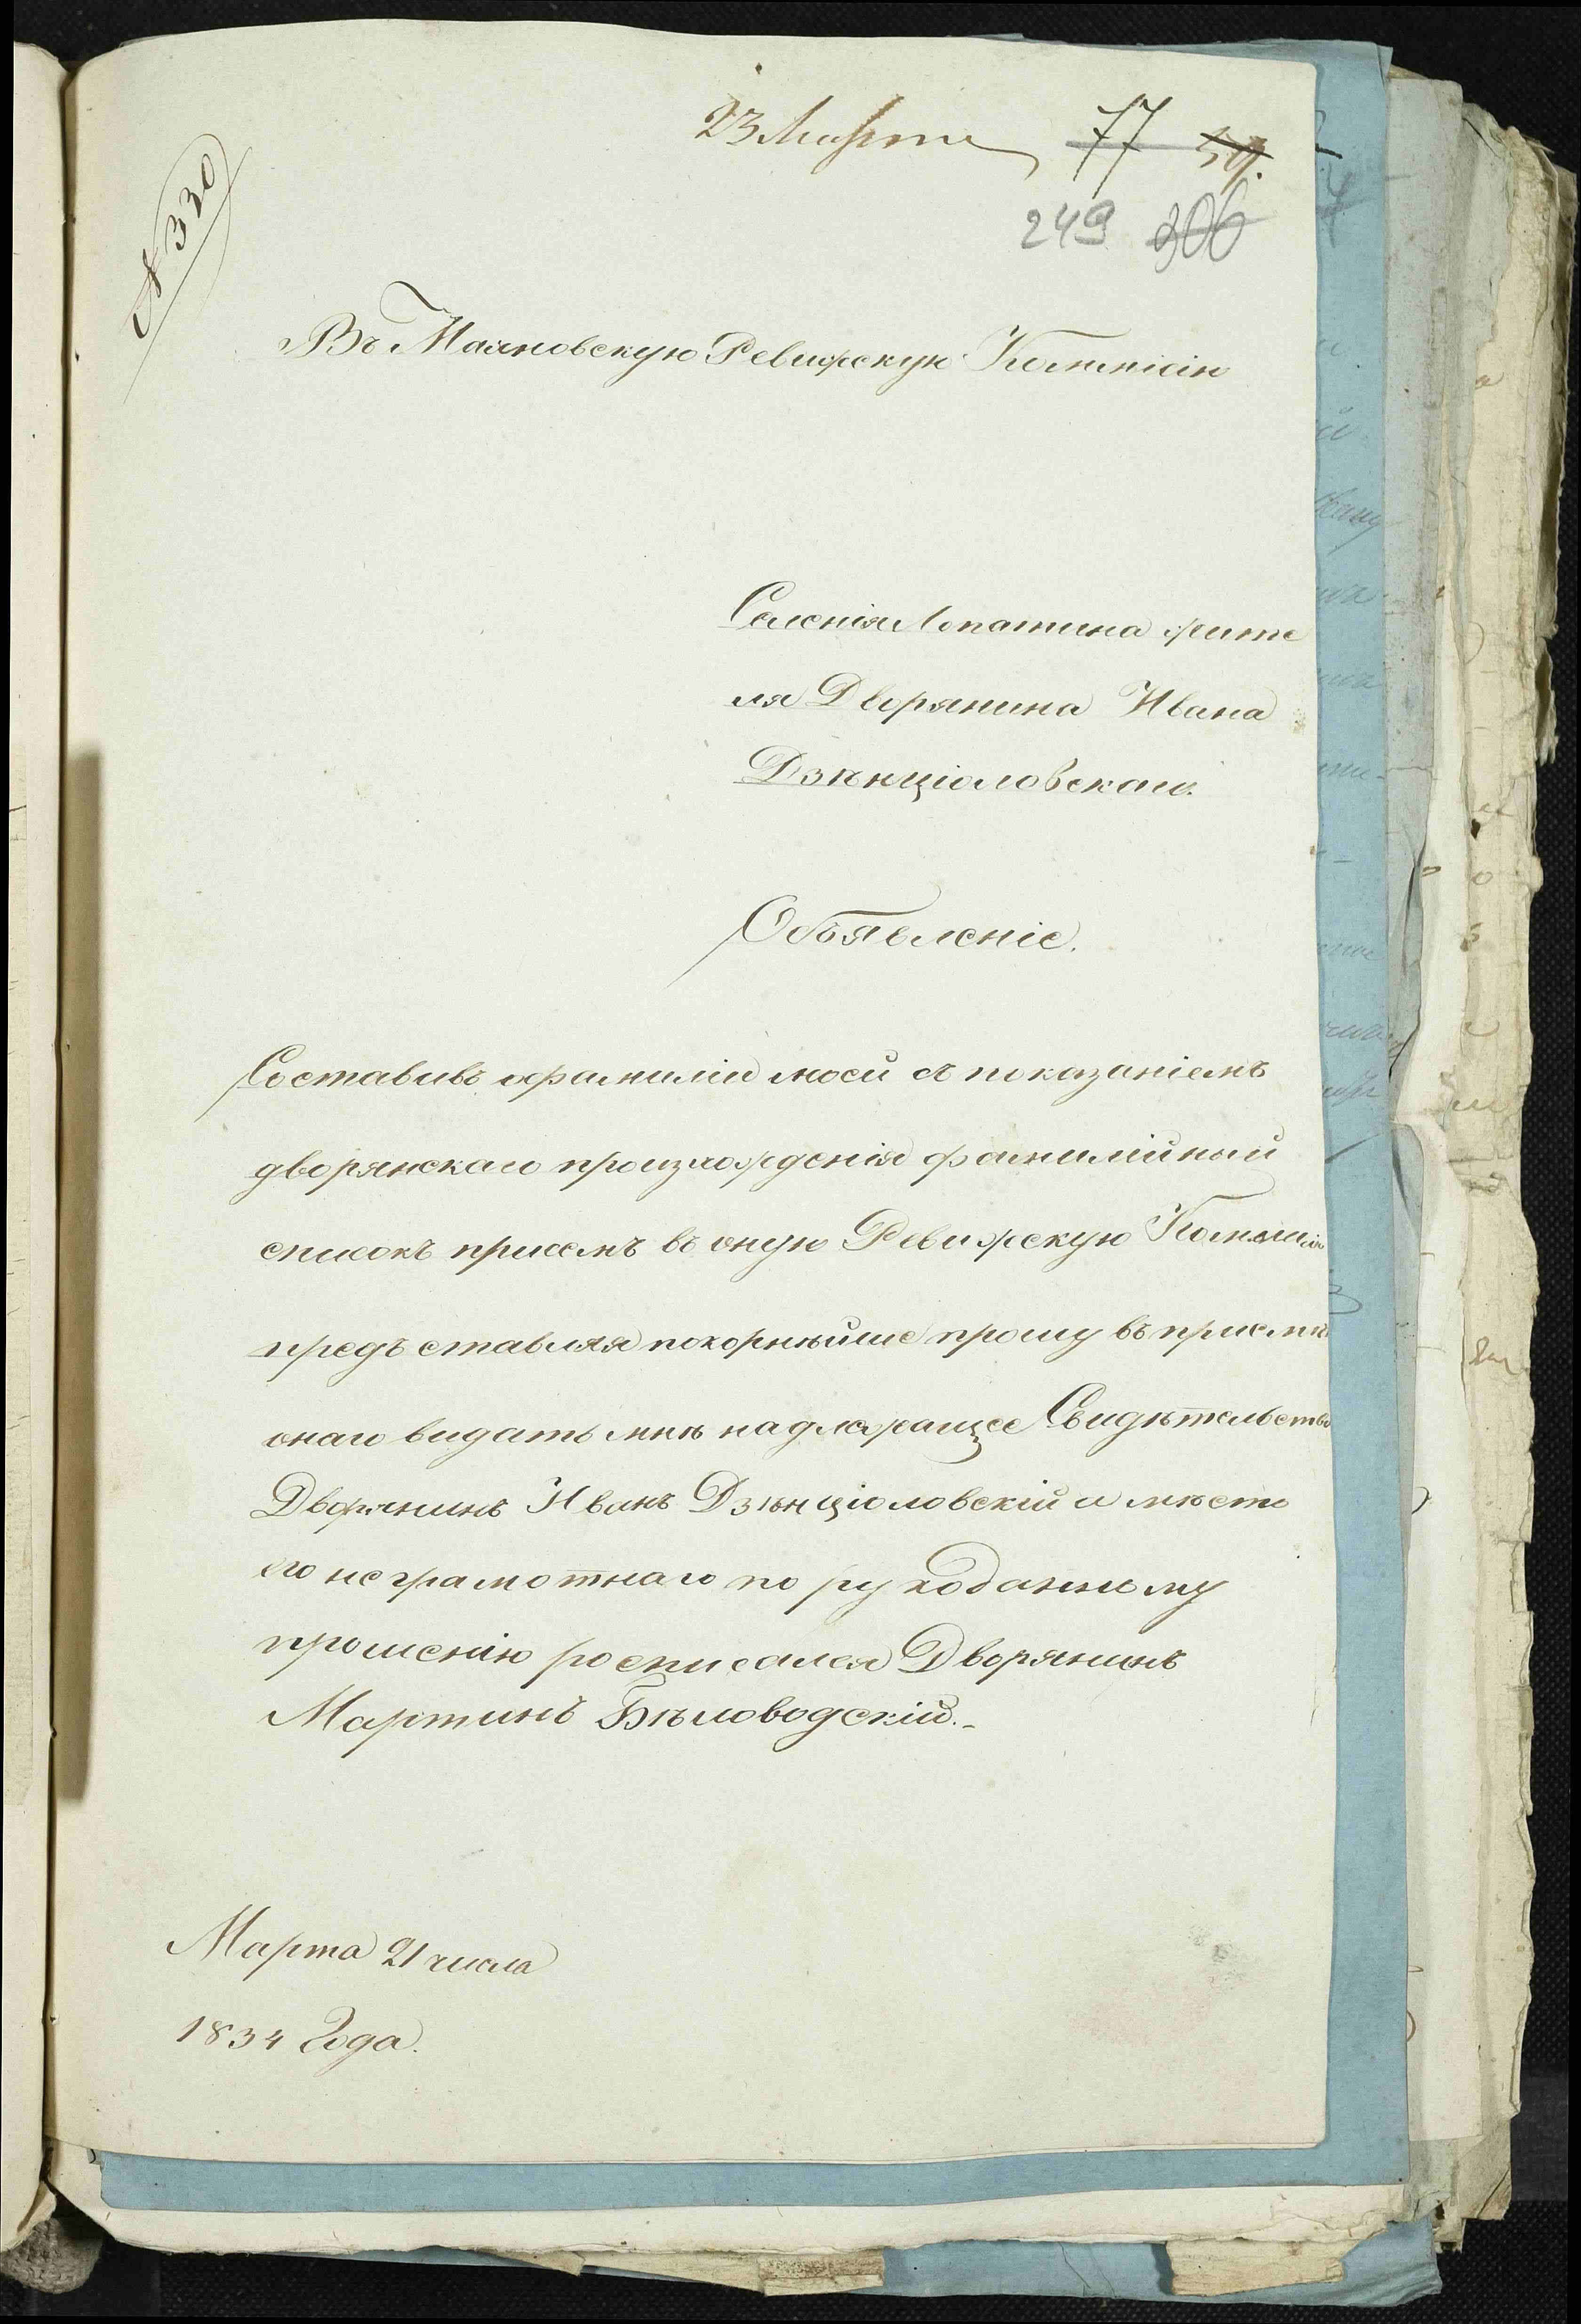 23 Марта 77 59.
249 306
№ 330
Въ Маяновскую Ревижскую Коммисію
Селенія Лопатина жите
ля Дворянина Ивана
Дзѣнціоловскаго.
Объявленіе.
Составивъ о фамиліи моей съ показаніемъ
дворянскаго произхожденія фамилійный
списокъ присемъ въ оную Ревижскую Коммисію
предъставляя покорнѣйше прошу въ пріемѣ
онаго видать мнѣ надлежащее Свидѣтельство
Дворянинъ Иванъ Дзѣнціоловскій а мѣсто
его неграмотнаго по рукоданному
прошенію росписался Дворянинъ
Мартинъ Бѣловодскій.-
Марта 21 числа
1834 Года.